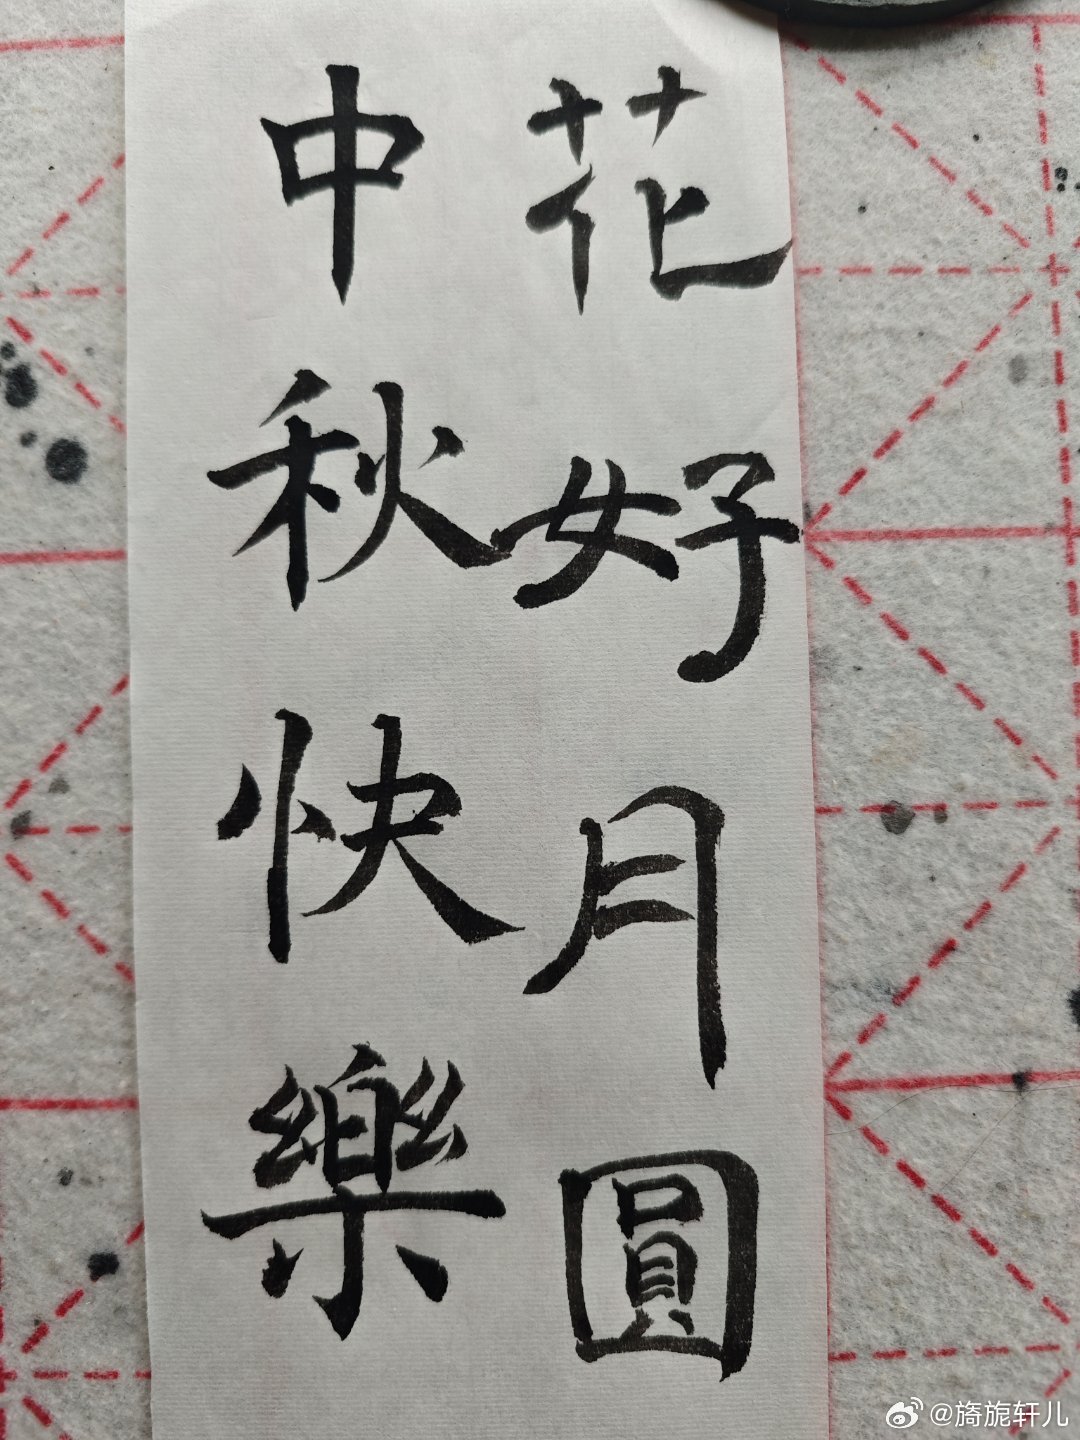 花好月圓
中秋快樂
@旖旎轩儿